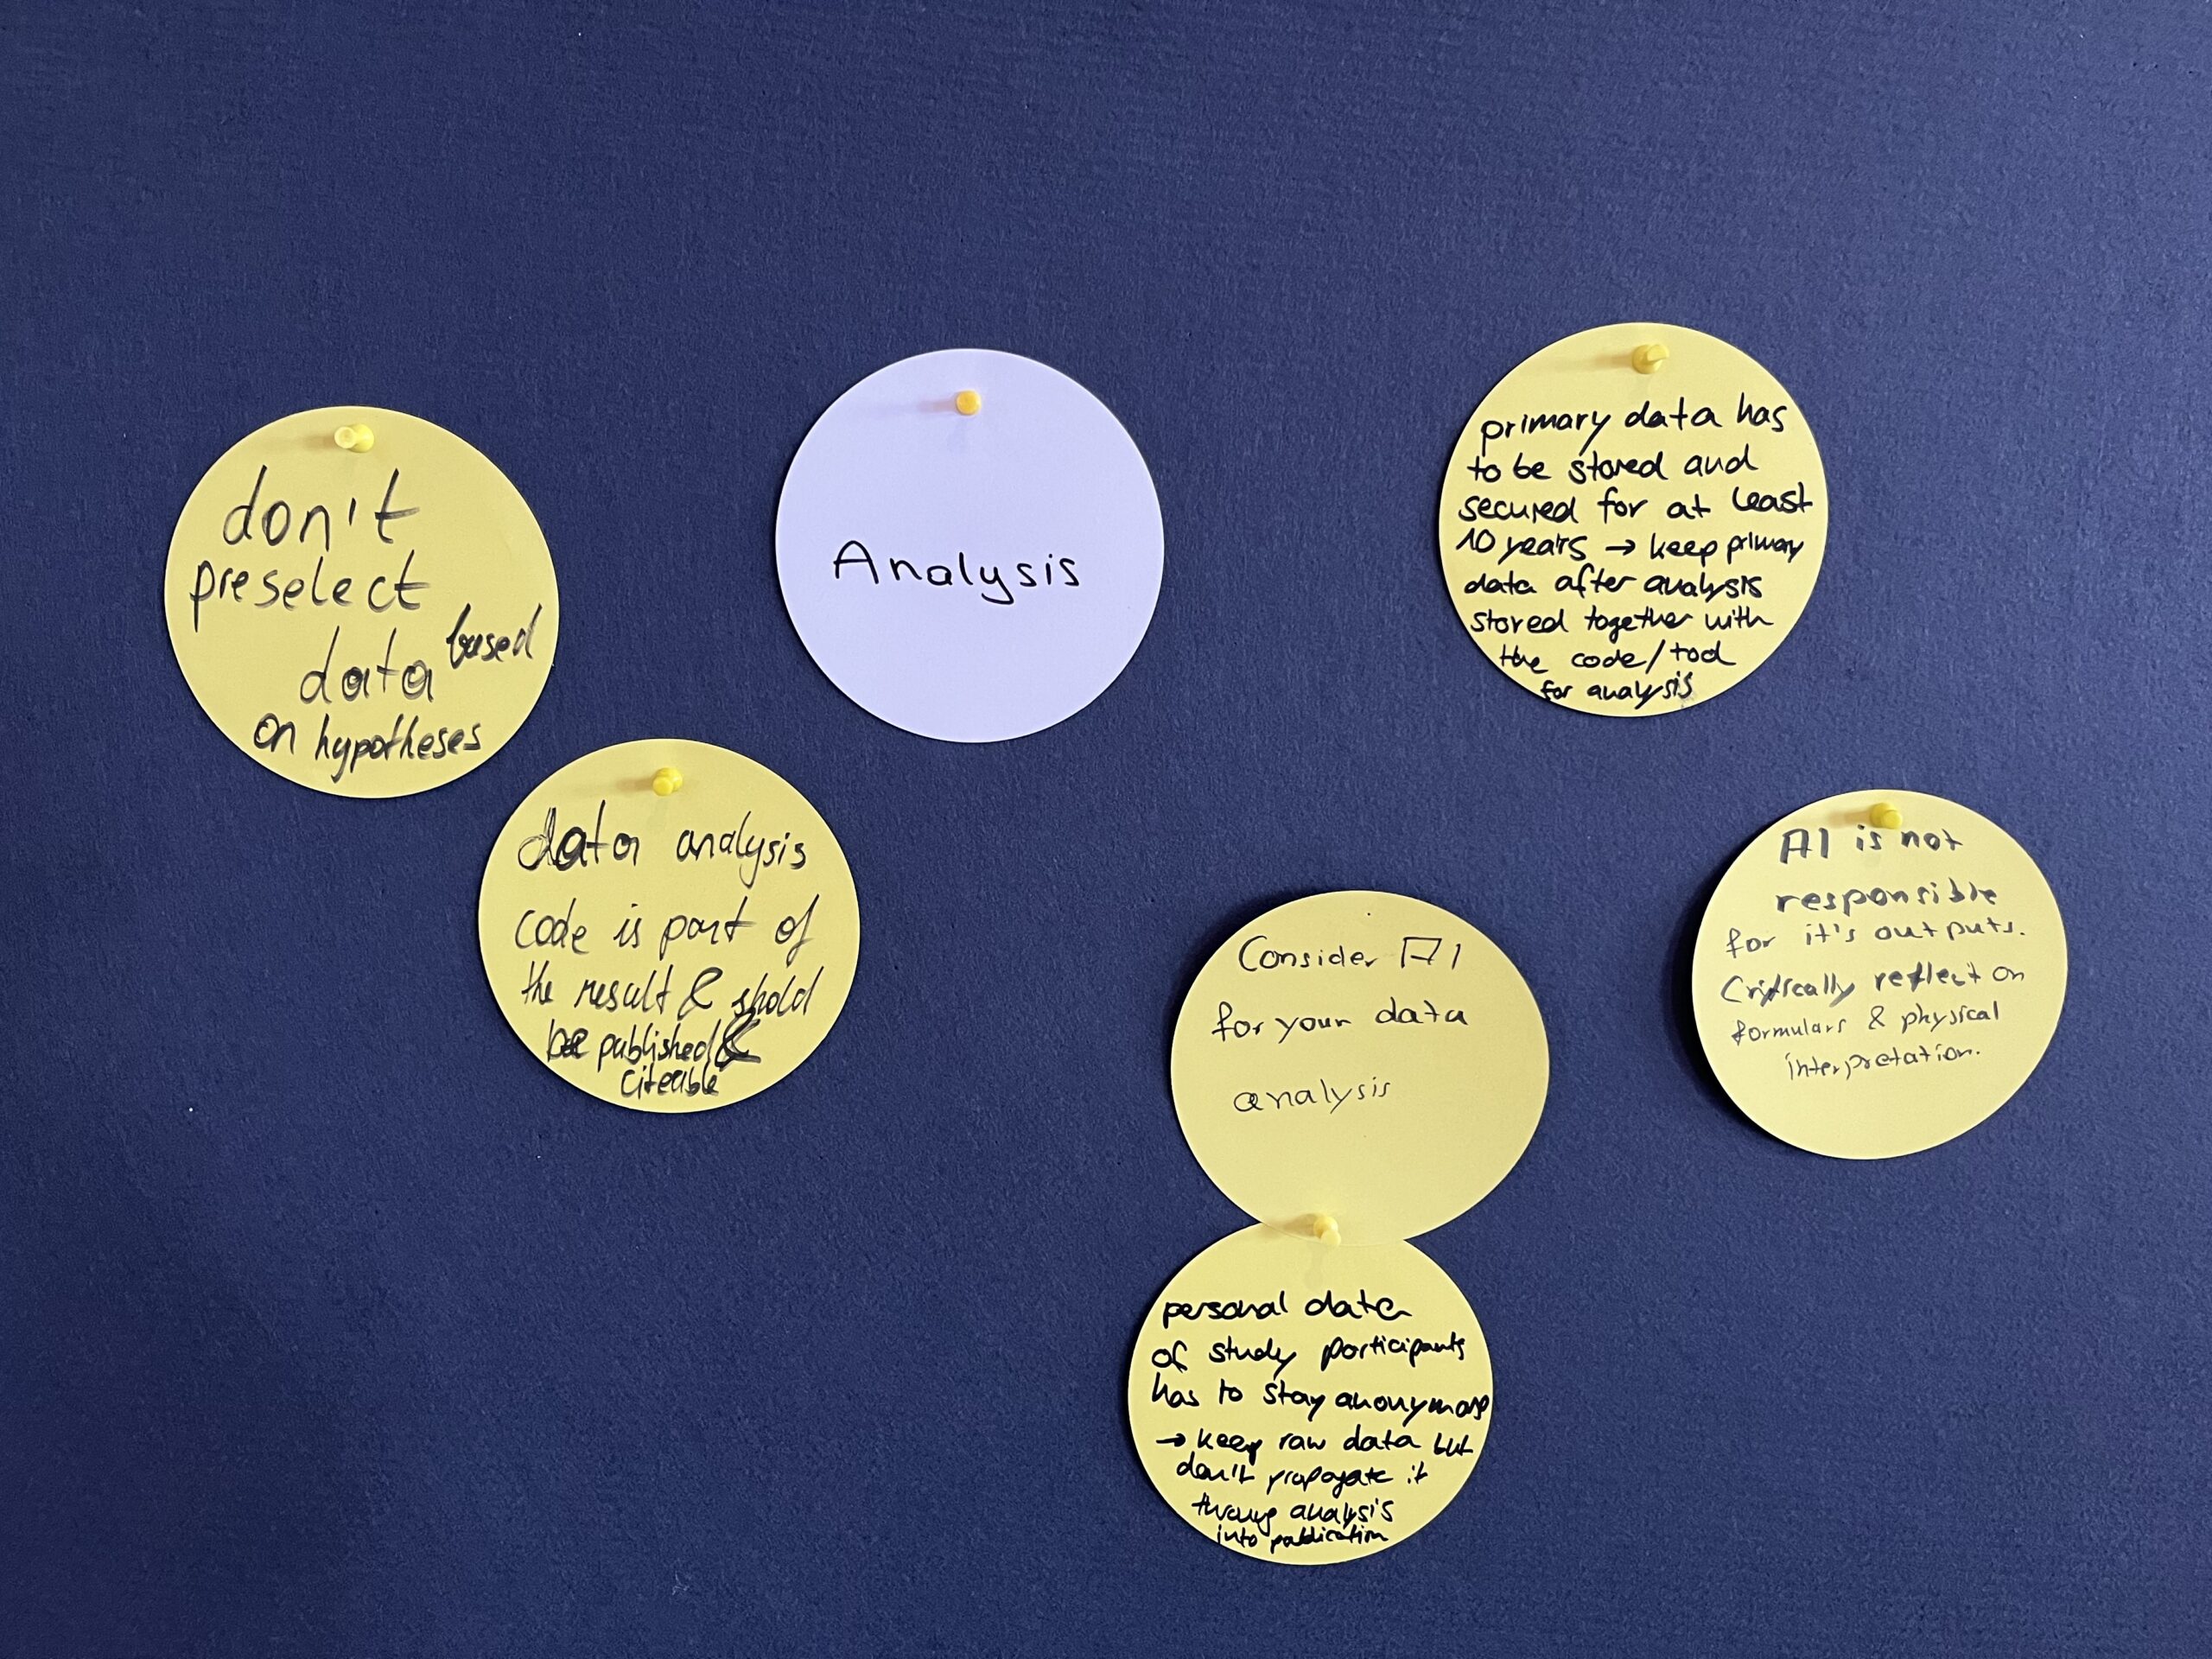 don't
preselect
data based
on hypotheses
Analysis
primary data has
to be stored and
secured for at least
10 years → keep primary
data after analysis
stored together with
the code/tool
for analysis
data analysis
code is part of
the result & shold
be published &
citeable
Consider AI
for your data
analysis
AI is not
responsible
for it's outputs.
Critically reflect on
formulars & physical
interpretation.
personal data
of study participants
has to stay anonymous
→ keep raw data but
don't propagate it
throug analysis
into publication